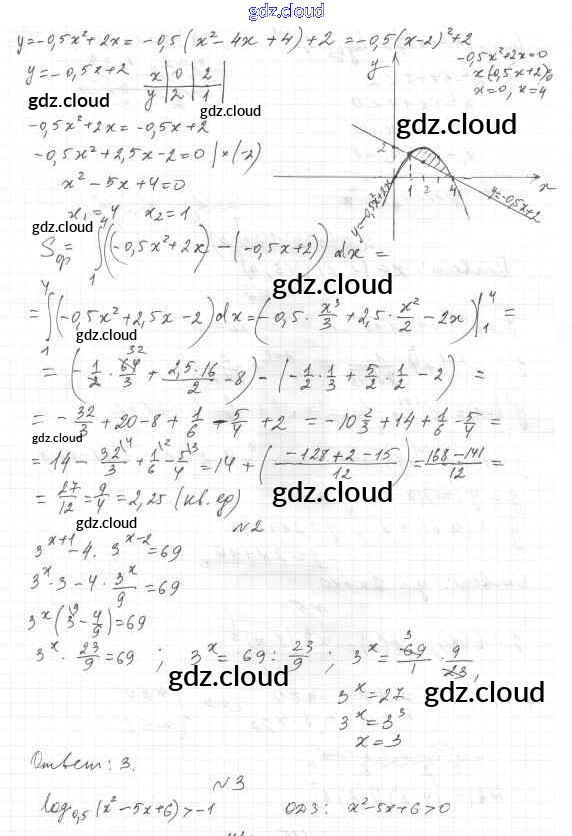 gdz.cloud
y=-0,5x²+2x = -0,5(x²-4x+4)+2 = -0,5(x-2)²+2
-0,5x²+2x=0
x(0,5x+2)=0
x=0, x=4
y=-0,5x+2
x | 0 | 2
y | 2 | 1
gdz.cloud
gdz.cloud
y
2
1 2 4 x
y=-0,5x²+2x
y=-0,5x+2
-0,5x²+2x = -0,5x+2
-0,5x²+2,5x-2=0 | ×(-2)
x²-5x+4=0
x₁=4 x₂=1
gdz.cloud
S = ∫₁⁴((-0,5x²+2x)-(-0,5x+2))dx =
gdz.cloud
= ∫₁⁴(-0,5x²+2,5x-2)dx = (-0,5·x³/3+2,5·x²/2-2x)|₁⁴ =
gdz.cloud
= (-1/2·64/3+2,5·16/2-8)-(-1/2·1/3+5/2·1/2-2) =
= -32/3+20-8+1/6-5/4+2 = -10 2/3+14+1/6-5/4 =
gdz.cloud
gdz.cloud
= 14-32/3+1/6-5/4 = 14+((-128+2-15)/12) = (168-141)/12 =
= 27/12 = 9/4 = 2,25 (кв. ед)
gdz.cloud
gdz.cloud
№2
3^(x+1)-4·3^(x-2)=69
3^x·3-4·3^x/9=69
3^x(3-4/9)=69
3^x·23/9=69 ; 3^x=69:23/9 ; 3^x=69/1·9/23,
gdz.cloud
gdz.cloud
3^x=27
3^x=3³
x=3
Ответ: 3.
№3
log₀,₅(x²-5x+6)>-1 ОДЗ: x²-5x+6>0